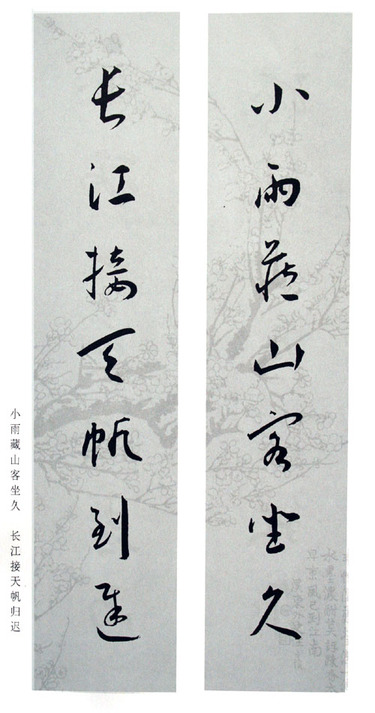 小雨藏山客坐久
长江接天帆到迟
小雨藏山客坐久 长江接天帆归迟